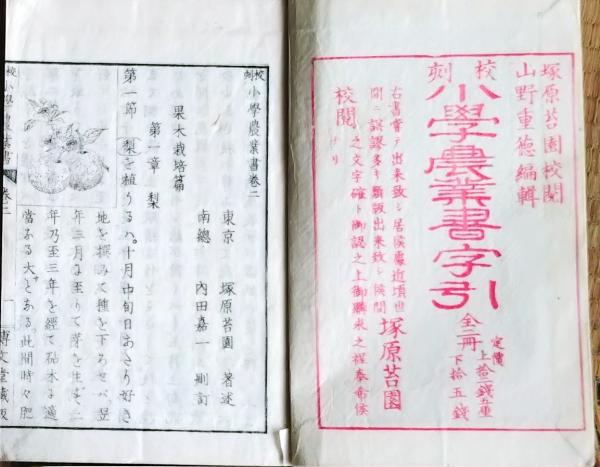 塚原苔園校閲
山野重德編輯
校刻
小學農業書字引
全二冊
定價
上拾二錢五厘
下拾五錢
右書曾テ出来致シ居候處近頃世
間ニ誤謬多キ類版出来致シ候間
塚原苔園
校閲ナリ
之文字確ト御認之上御購求之程奉希候
校刻小學農業書卷二
東京 塚原苔園 著述
南總 內田嘉一 刪訂
果木栽培篇
第一章 梨
第一節 梨を植うるハ十月中旬日あたり好き
地を撰みて種を下ろせバ翌
年三月に至りて芽を生ず二
年乃至三年を經て砧木に適
當なる大さとなる此間時々肥
校刻小學農業書
卷二
一
博文堂藏版